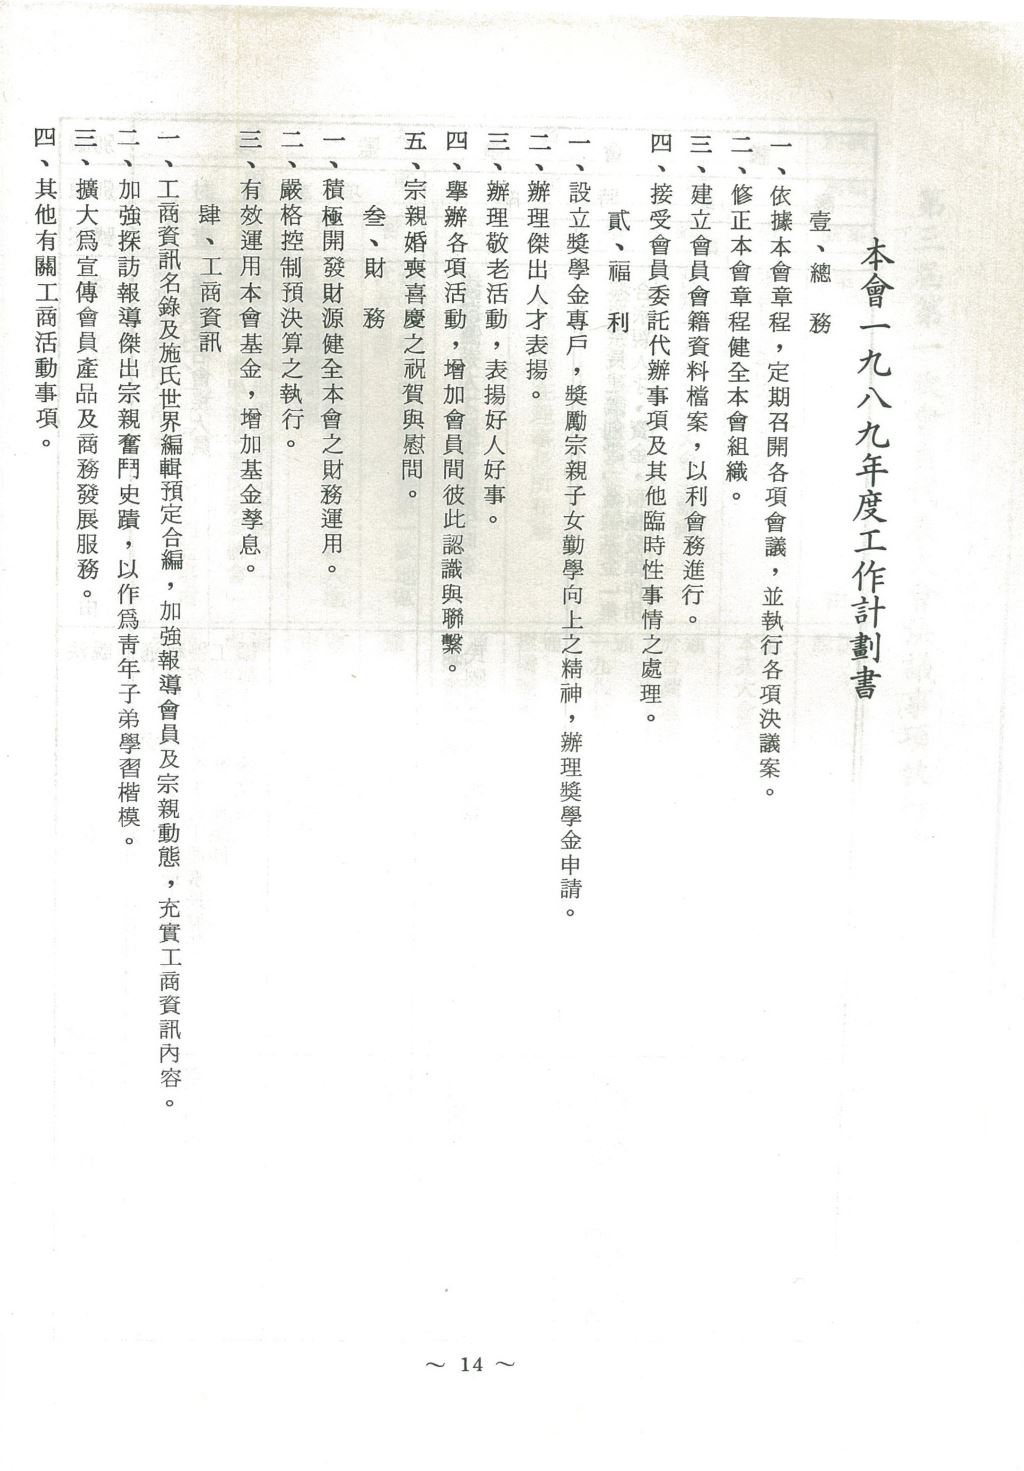 本會一九八九年度工作計劃書
壹、總務
一、依據本會章程，定期召開各項會議，並執行各項決議案。
二、修正本會章程健全本會組織。
三、建立會員會籍資料檔案，以利會務進行。
四、接受會員委託代辦事項及其他臨時性事情之處理。
貳、福利
一、設立獎學金專戶，獎勵宗親子女勤學向上之精神，辦理獎學金申請。
二、辦理傑出人才表揚。
三、辦理敬老活動，表揚好人好事。
四、舉辦各項活動，增加會員間彼此認識與聯繫。
五、宗親婚喪喜慶之祝賀與慰問。
叁、財務
一、積極開發財源健全本會之財務運用。
二、嚴格控制預決算之執行。
三、有效運用本會基金，增加基金孳息。
肆、工商資訊
一、工商資訊名錄及施氏世界編輯預定合編，加強報導會員及宗親動態，充實工商資訊內容。
二、加強採訪報導傑出宗親奮鬥史蹟，以作爲靑年子弟學習楷模。
三、擴大爲宣傳會員產品及商務發展服務。
四、其他有關工商活動事項。
～ 14 ～